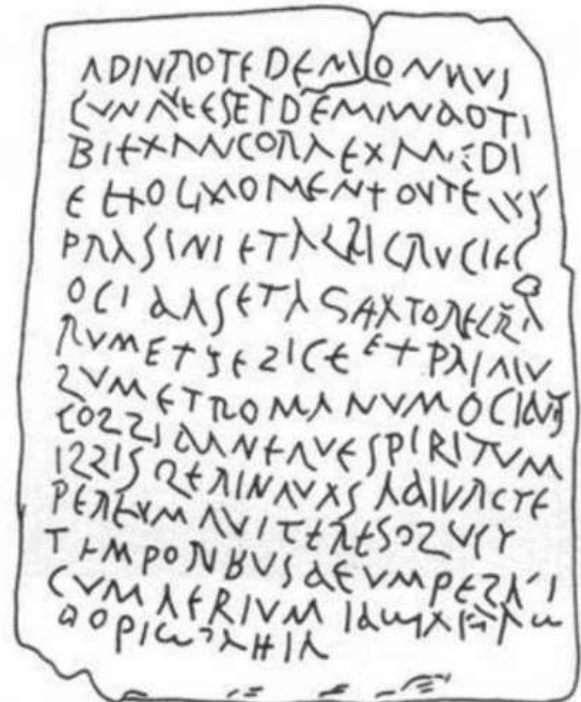 ADIVROTEDEMONQVI
CVNQVEESETDEMANDOTI
BIEXANCORAEXANCDI
EEXOCMOMENTOVTEQVOS
PRASINIETALBICRVCIES
OCIDASETAGITATORECLA
RVMETFELICEETPRIMV
LVMETROMANVMOCIDAS
COLLIDANEQVESPIRITVM
ILLISRELINQVASADIVROTE
PEREVMQVITERESOLVIT
TEMPORIBVSDEVMPELAGI
CVMAERIVM